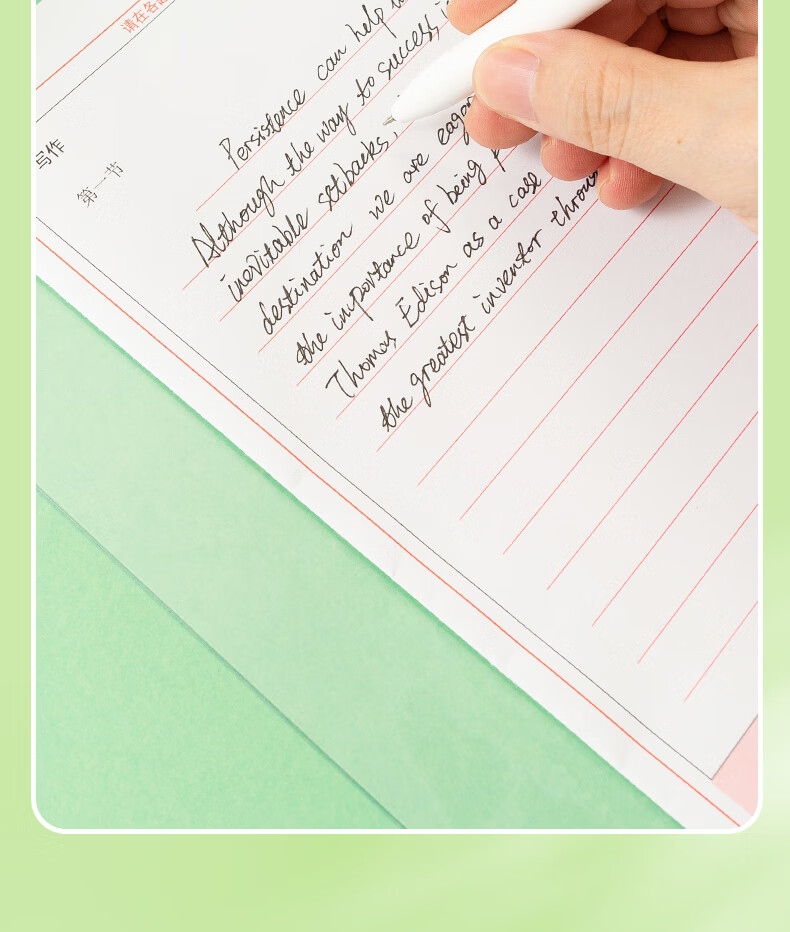 请在各
写作
第一节
Persistence can help
Although the way to success,
inevitable setbacks,
destination we are eager
the importance of being
Thomas Edison as a case
the greatest inventor throu